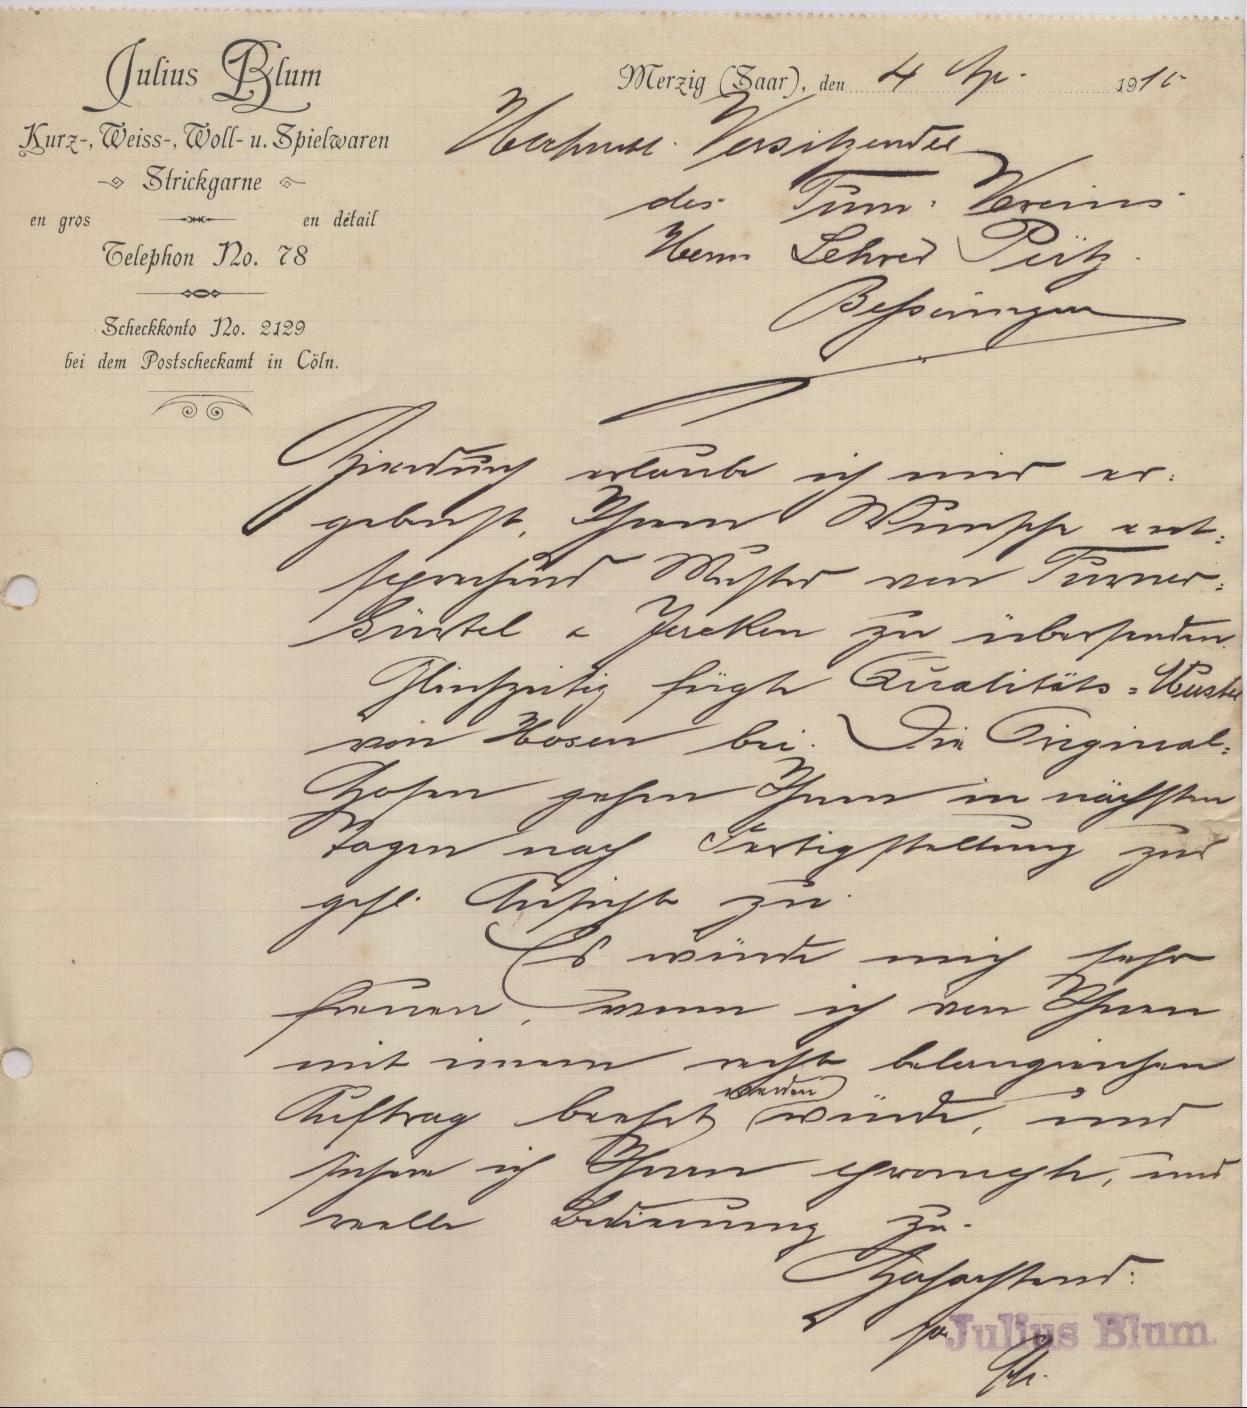 Julius Blum
Kurz-, Weiss-, Woll- u. Spielwaren
Strickgarne
en gros en détail
Telephon No. 78
Scheckkonto No. 2129
bei dem Postscheckamt in Cöln.
Merzig (Saar), den 4 Ap. 1910
Vorsitzender
des Turn-Vereins
Herrn Lehrer Pütz
Besseringen
Hierdurch erlaube ich mir er-
gebenst, Ihrem Wunsche ent-
sprechend Muster von Turner-
Gürtel & Jacken zu übersenden.
Gleichzeitig fügte Qualitäts-Muster
von Hosen bei. Die Original-
Hosen gehen Ihnen in nächsten
Tagen nach Fertigstellung zur
gefl. Ansicht zu.
Es würde mich sehr
freuen, wenn ich von Ihnen
mit einem recht belangreichen
Auftrag beehrt werden würde, und
sichere ich Ihnen prompte, und
reelle Bedienung zu.
Hochachtend:
Julius Blum